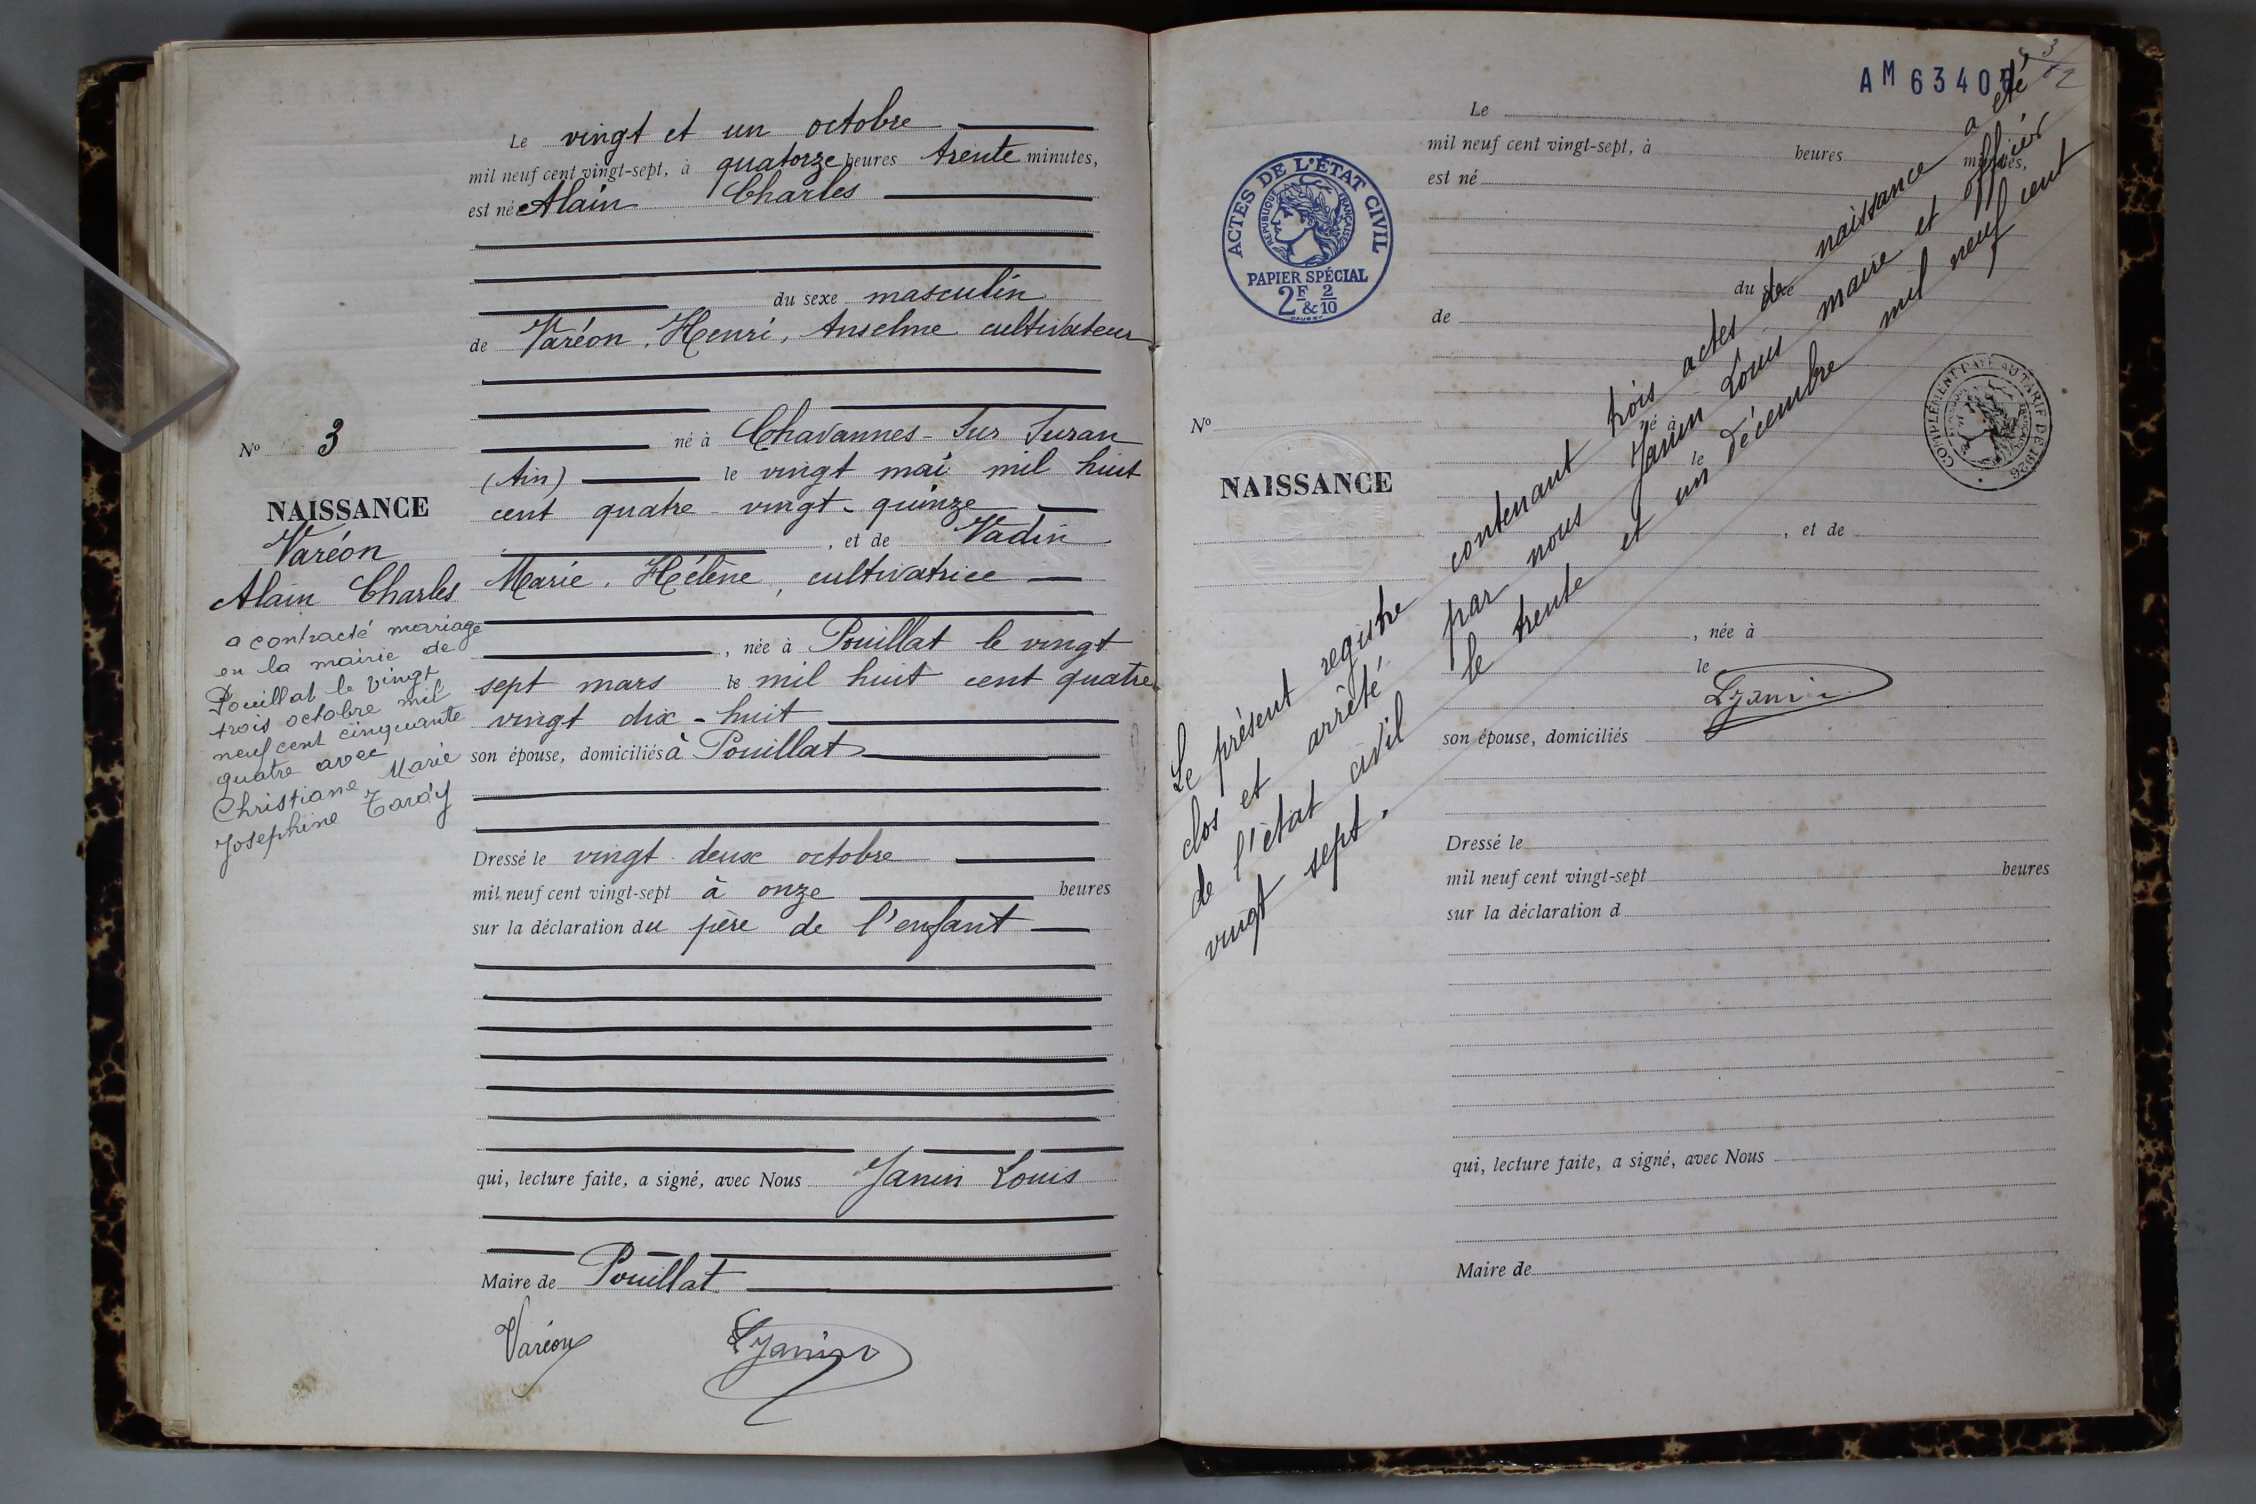 Le vingt et un octobre
mil neuf cent vingt-sept, à quatorze heures trente minutes,
est né Alain Charles
du sexe masculin
de Varéon, Henri, Anselme cultivateur
né à Chavannes-Sur Suran
(Ain) le vingt mai mil huit
cent quatre-vingt-quinze
, et de Vadin
Marie, Hélène, cultivatrice
, née à Pouillat le vingt
sept mars le mil huit cent quatre
vingt dix-huit
son épouse, domiciliés à Pouillat
Dressé le vingt deux octobre
mil neuf cent vingt-sept à onze heures
sur la déclaration du père de l'enfant
qui, lecture faite, a signé, avec Nous Janin Louis
Maire de Pouillat
Varéon
LJanin
No 3
NAISSANCE
Varéon
Alain Charles
a contracté mariage
en la mairie de
Pouillat le vingt
trois octobre mil
neuf cent cinquante
quatre avec
Christiane Marie
Josephine Tardy
AM 6340
ACTES DE L'ÉTAT CIVIL
RÉPUBLIQUE FRANÇAISE
PAPIER SPÉCIAL
2F & 2/10
COMPLÉMENT PAYÉ AU TARIF DE 1926
Le
mil neuf cent vingt-sept, à heures minutes,
est né
du sexe
de
No
né à
le
NAISSANCE
, et de
, née à
le
son épouse, domiciliés
Dressé le
mil neuf cent vingt-sept heures
sur la déclaration d
qui, lecture faite, a signé, avec Nous
Maire de
Le présent registre contenant trois actes de naissance a été
clos et arrêté par nous Janin Louis maire et officier
de l'état civil le trente et un décembre mil neuf cent
vingt sept.
LJanin